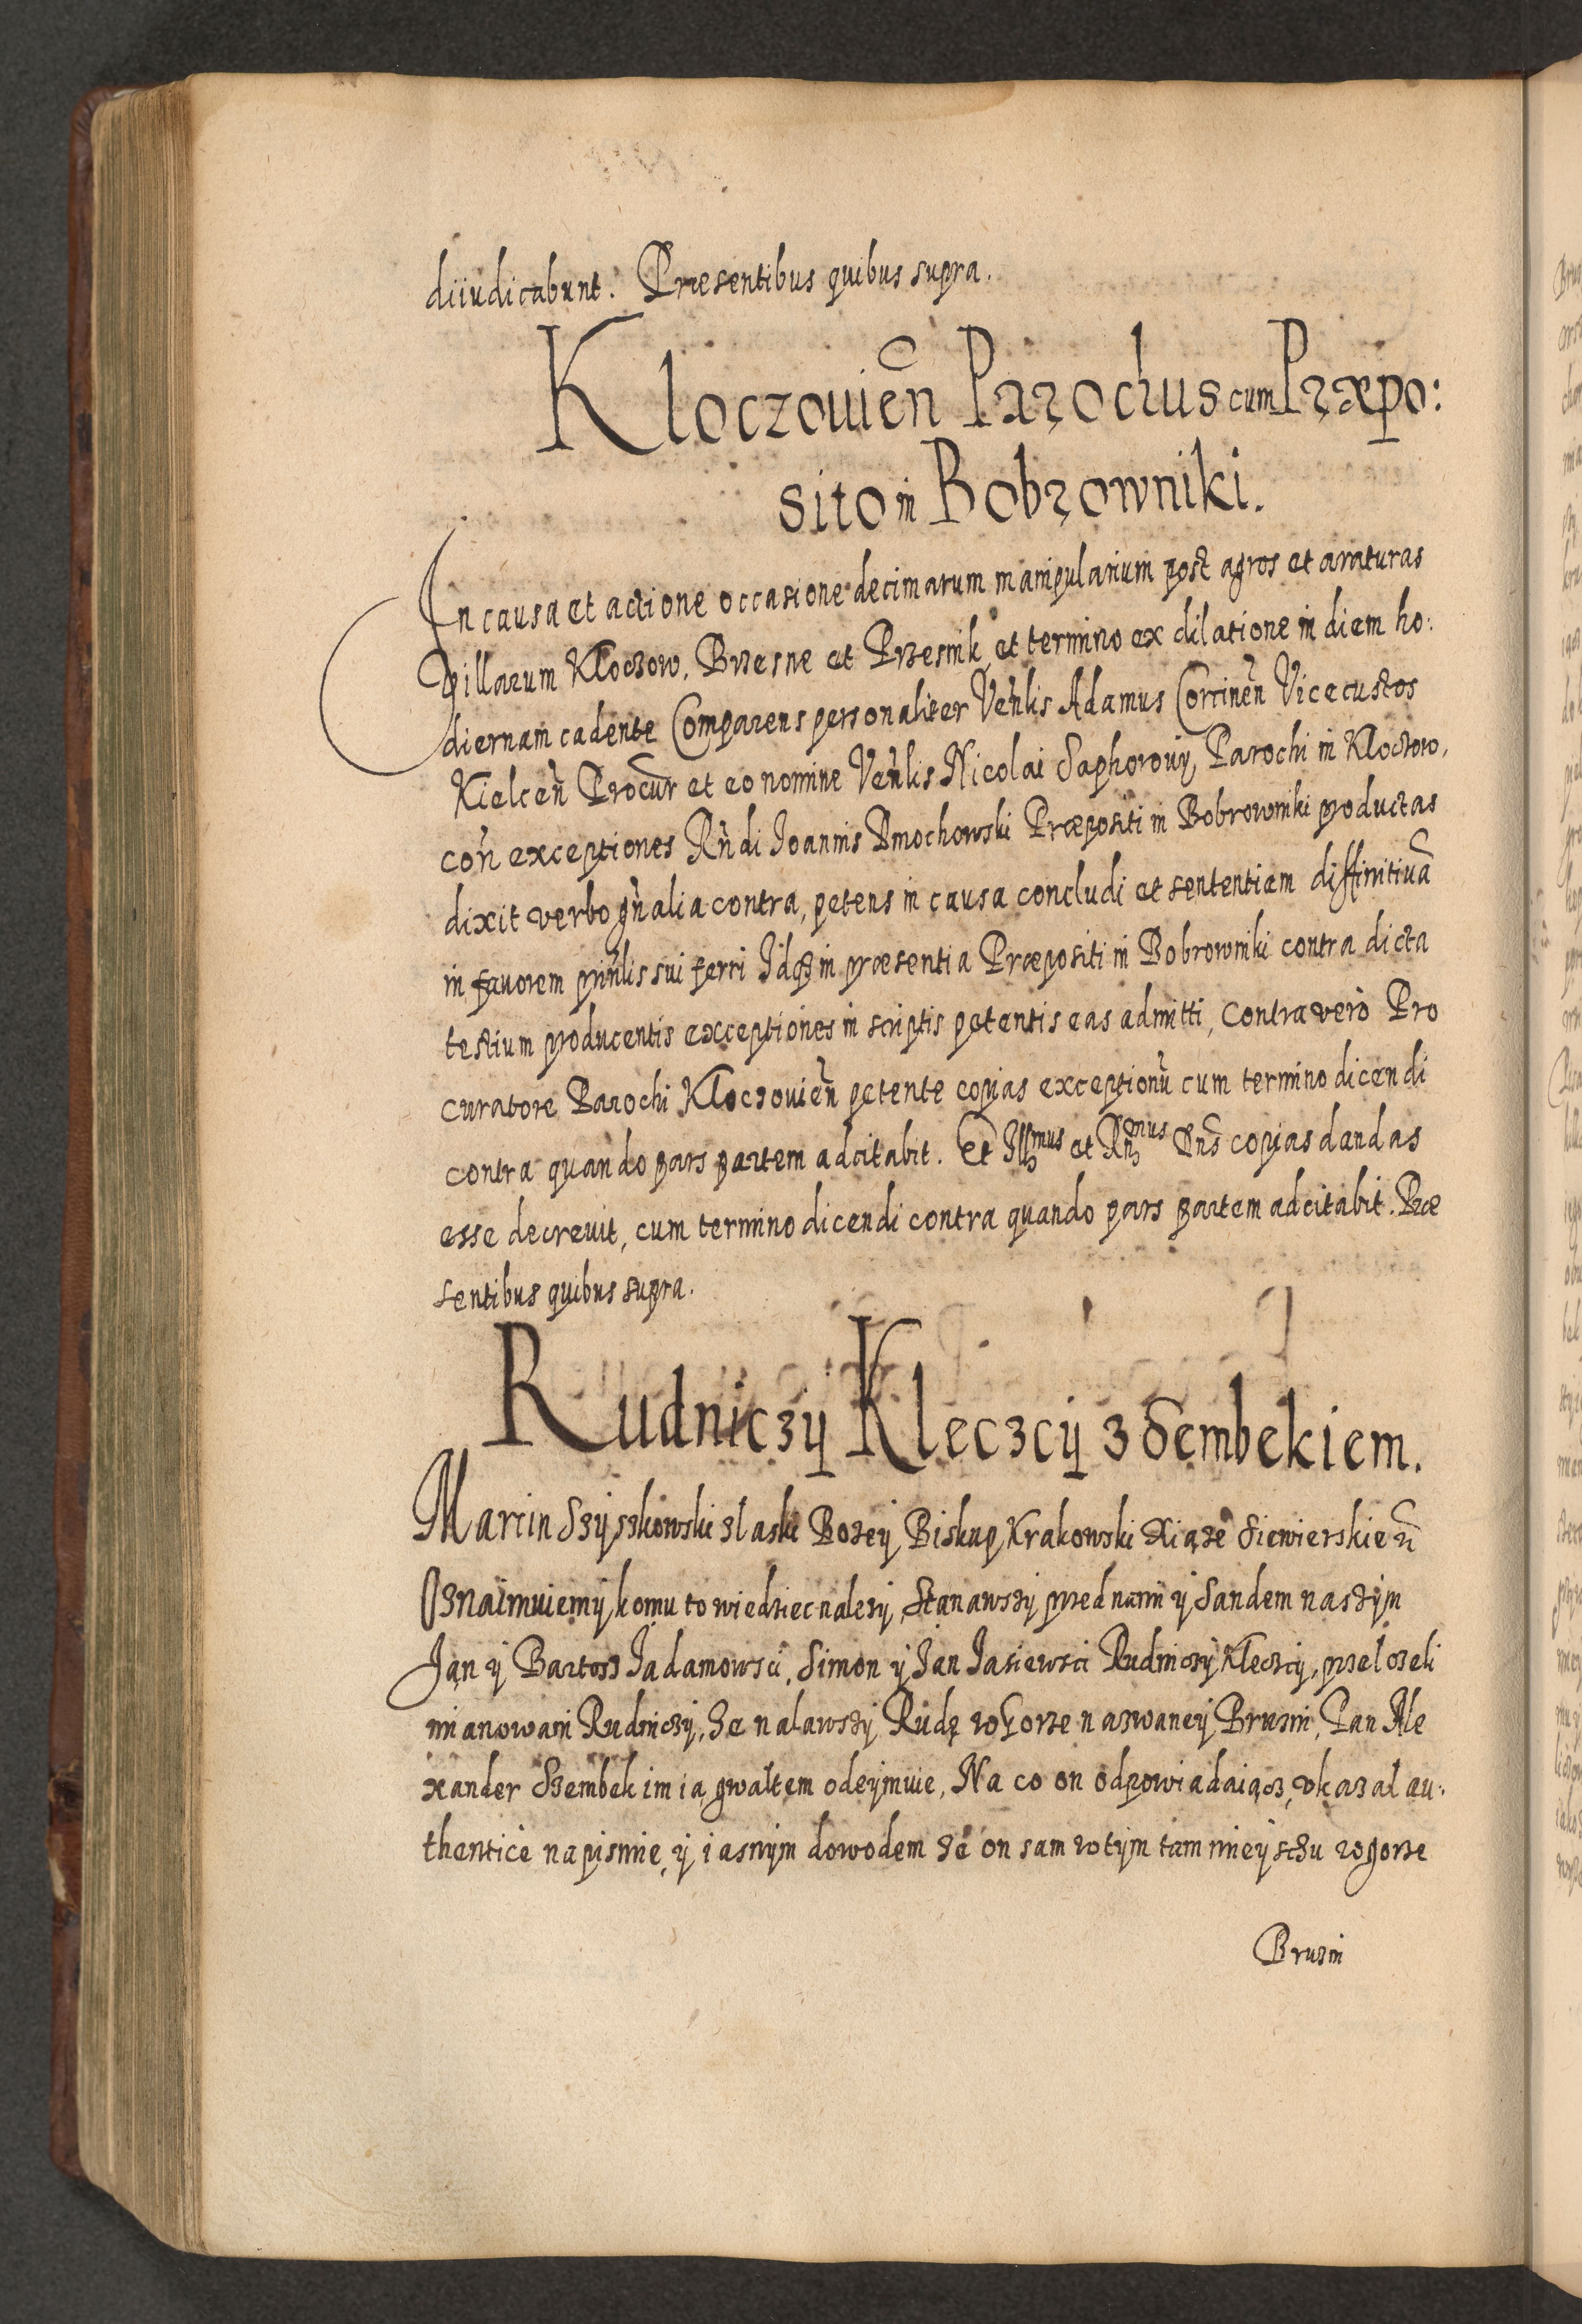 diiudicabunt. Præsentibus quibus supra.
Kloczouien̄ Parochus cum Præpo:
sito in Bobrowniki.
In causa et actione occasione decimarum manipularium post agros et araturas
Villarum Kloczow, Brzesne et Przesnik, et termino ex dilatione in diem ho:
diernam cadente Comparens personaliter Veñlis Adamus Corcineñ Vicecustos
Kielceñ Procur̃ et eo nomine Veñlis Nicolai Saphorouij Parochi in Kloczow,
coñ exceptiones Rñdi Joannis Dmochowski Præpositi in Bobrowniki productas
dixit verbo gñalia contra, petens in causa concludi et sententiam diffinitiuã
in fauorem prinlis sui ferri Idq3 in præsentia Præpositi in Bobrowniki contra dicta
testium producentis exceptiones in scriptis petentis eas admitti, Contra vero Pro
curatore Parochi Kloczouieñ petente copias exceptionũ cum termino dicendi
contra quando pars partem adcitabit. Et Ill3mus et Rn3mus Dns̃ copias dandas
esse decreuit, cum termino dicendi contra quando pars partem adcitabit. Præ
sentibus quibus supra.
Rudniczÿ Kleczcÿ z Sembekiem.
Marcin Szÿszkowski z laski Bozeÿ Biskup Krakowski Xiąze Siewierskie
Oznaimuiemÿ komu to wiedziec nalezÿ, Stanawszÿ przed nami ÿ Sandem naszÿm
Jan ÿ Bartosz Jadamowsci, Simon ÿ Jan Jasiewsci Rudniczÿ Kleczcÿ, przelozeli
mianowani Rudniczÿ, ze nalawszÿ Rudę w gorze nazwaneÿ Bruzin, Pan Ale
xander Szembek im ią gwałtem odeÿmuie, Na co on odpowiadaiącz, vkazal au:
thentice na pismie, ÿ iasnÿm dowodem ze on sam w tÿm tam mieÿsczu w gorze
Bruzin